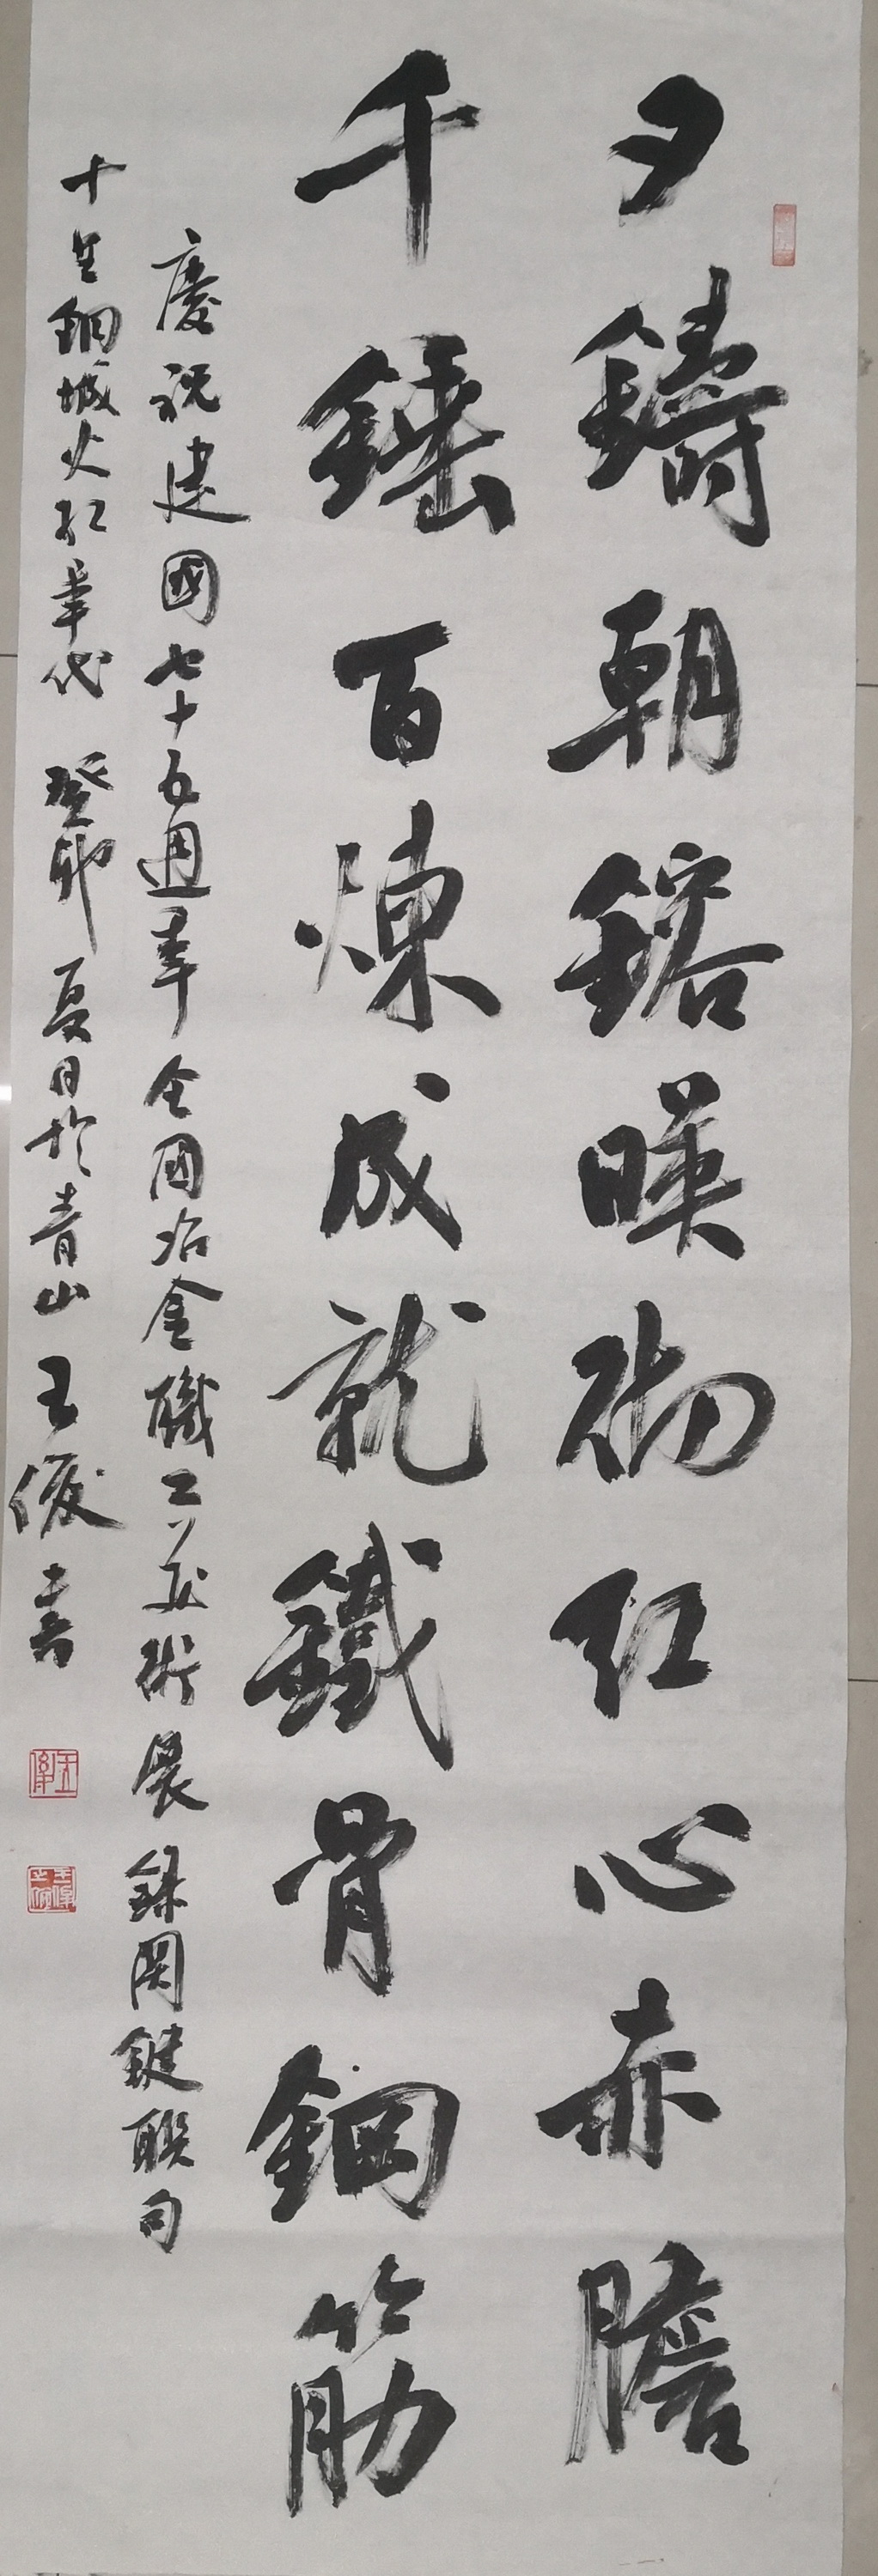 夕鑄朝鎔暎礪红心赤膽
千錘百煉成就鐵骨鋼筋
慶祝建國七十五週年全國冶金職工美術展錄関鍵聯句
十里鋼城火红年代 癸卯夏日於青山王俊書